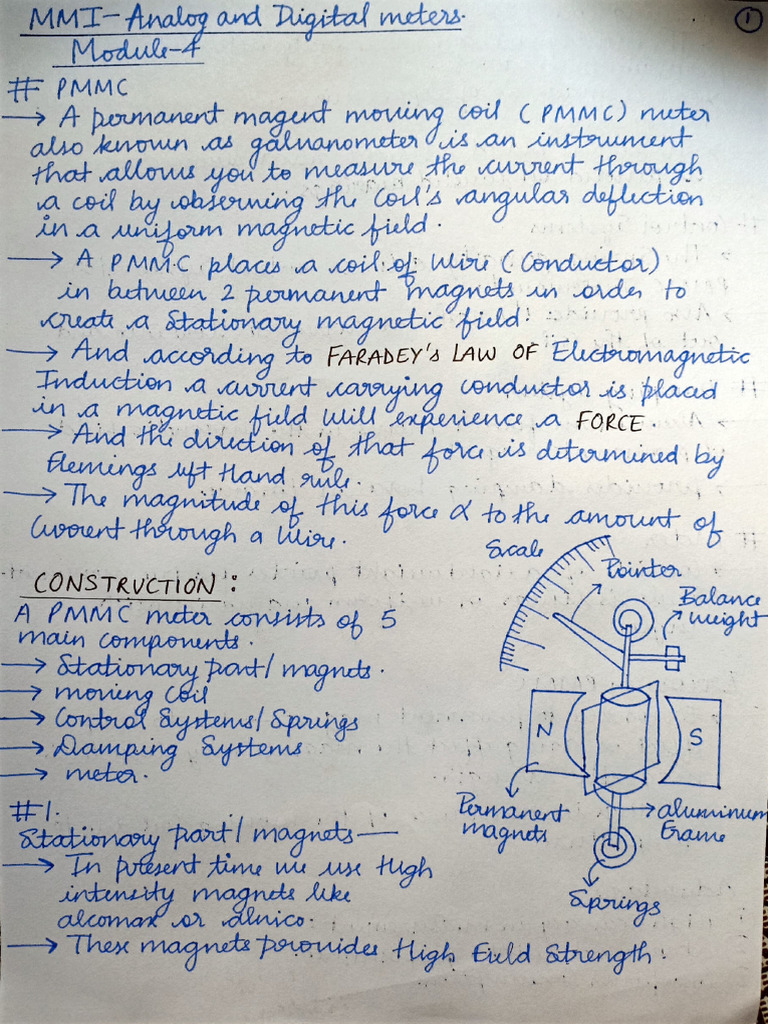 MMI - Analog and Digital meters.
1
Module-4
# PMMC
→ A permanent magent moving coil (PMMC) meter
also known as galvanometer is an instrument
that allows you to measure the current through
a coil by observing the coil's angular deflection
in a uniform magnetic field.
→ A PMMC places a coil of wire (Conductor)
in between 2 permanent magnets in order to
create a Stationary magnetic field.
→ And according to FARADEY'S LAW OF Electromagnetic
Induction a current carrying conductor is placed
in a magnetic field will experience a FORCE.
→ And the direction of that force is determined by
Flemings left Hand rule.
→ The magnitude of this force α to the amount of
Current through a wire.
CONSTRUCTION :
A PMMC meter consists of 5
main components.
→ Stationary part/magnets.
→ moving coil
→ Control Systems/Springs
→ Damping Systems
→ meter.
Scale
Pointer
Balance
weight
N
S
Permanent
magnets
aluminum
frame
Springs
#1.
Stationary part/magnets —
→ In present time we use High
intensity magnets like
alcomax or alnico.
→ These magnets provides High Field Strength.